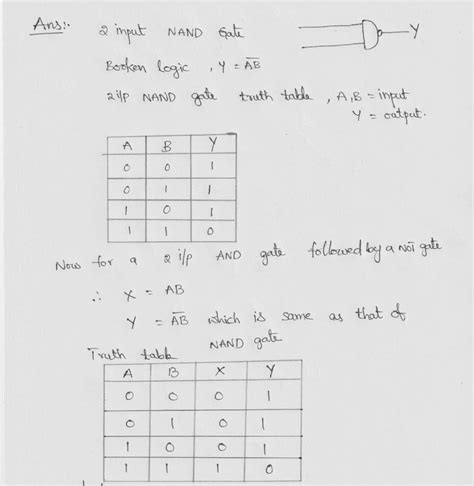 Ans:-
2 input NAND Gate
Y
Boolean logic, Y = A̅B̅
2 i/p NAND gate truth table, A,B = input
Y = output.
A B Y
0 0 1
0 1 1
1 0 1
1 1 0
Now for a 2 i/p AND gate followed by a NOT gate
∴ X = AB
Y = A̅B̅ which is same as that of
NAND gate
Truth table
A B X Y
0 0 0 1
0 1 0 1
1 0 0 1
1 1 1 0